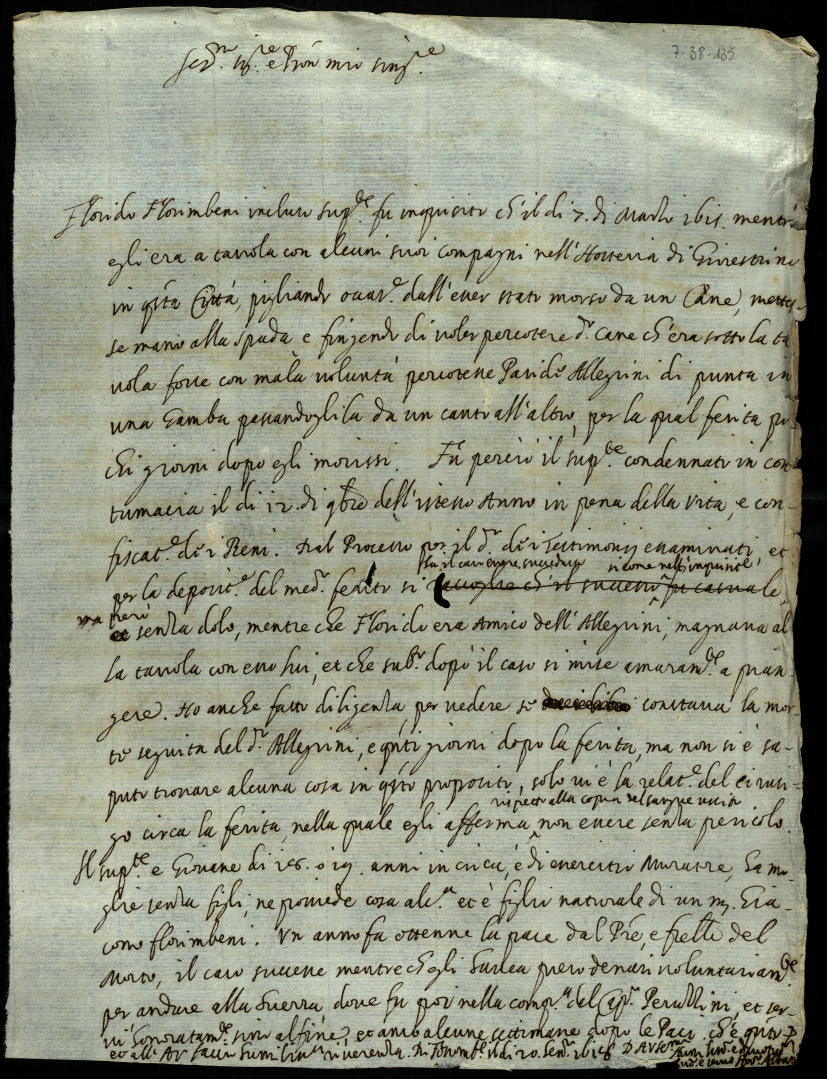 7-38-135
Ser.mo Sig.re e Pron mio sing.re
Florido Florimbeni incluso sup.te fu inquisito ch'il dì 7. di Marzo 1615. mentre
egli era a tavola con alcuni suoi compagni nell'Hosteria di
in q.sta Città, pigliando dall'esser stato morso da un Cane, mettes-
se mano alla spada e fingendo di voler percotere d.o cane ch'era sotto la ta
vola forse con mala voluntà percotesse Paride Allegrini di punta in
una Gamba passandoglila da un canto all'altro, per la qual ferita po-
chi giorni dopo egli morissi. Fu perciò il sup.te condennato in con
tumacia il dì 12. di 9bre dell'istesso Anno in pena della vita, e con-
fiscat.e de i Beni. Dal Processo per il d.o de i Testimonij essaminati, et
fu il caso essere successo si come nell'inquisit.e
per la deposit.e del med.o ferito si raccoglie ch'il successo fu casuale,
ma però
et senza dolo, mentre che Florido era Amico dell'Allegrini, magnava al
la tavola con esso lui, et che sub.o dopò il caso si mise amaram.te a pian-
gere. Ho anche fatto diligenza, per vedere se constava la mor-
te seguita del d.o Allegrini, e q.nti giorni dopo la ferita, ma non si è sa-
puto trovare alcuna cosa in q.sto proposito, solo vi è la relat.e del cirusi-
rispetto alla copia del sangue uscito
go circa la ferita, nella quale egli afferma non essere senza pericolo.
Il sup.te e Giovane di 18. o 19. anni in circa, è di essercitio Muratore, ha mo-
glie senza figli, ne possiede cosa alc.a et è figlio naturale di un m. Gia-
como florimbeni. Un anno fa ottenne la pace dal Pre, e frelli del
Morto, il caso successe mentre ch'egli havea preso denari voluntariam.te
per andare alla Guerra dove fu poi nella comp.a del Cap.o Peruzzini, et ser
vì honoratam.te sino al fine, et anco alcune settimane dopo le Paci, ch'è q.nto
et all'Al. facio humilin.a riverenza. Di 20. 1618 D. A. V. Ser.ma